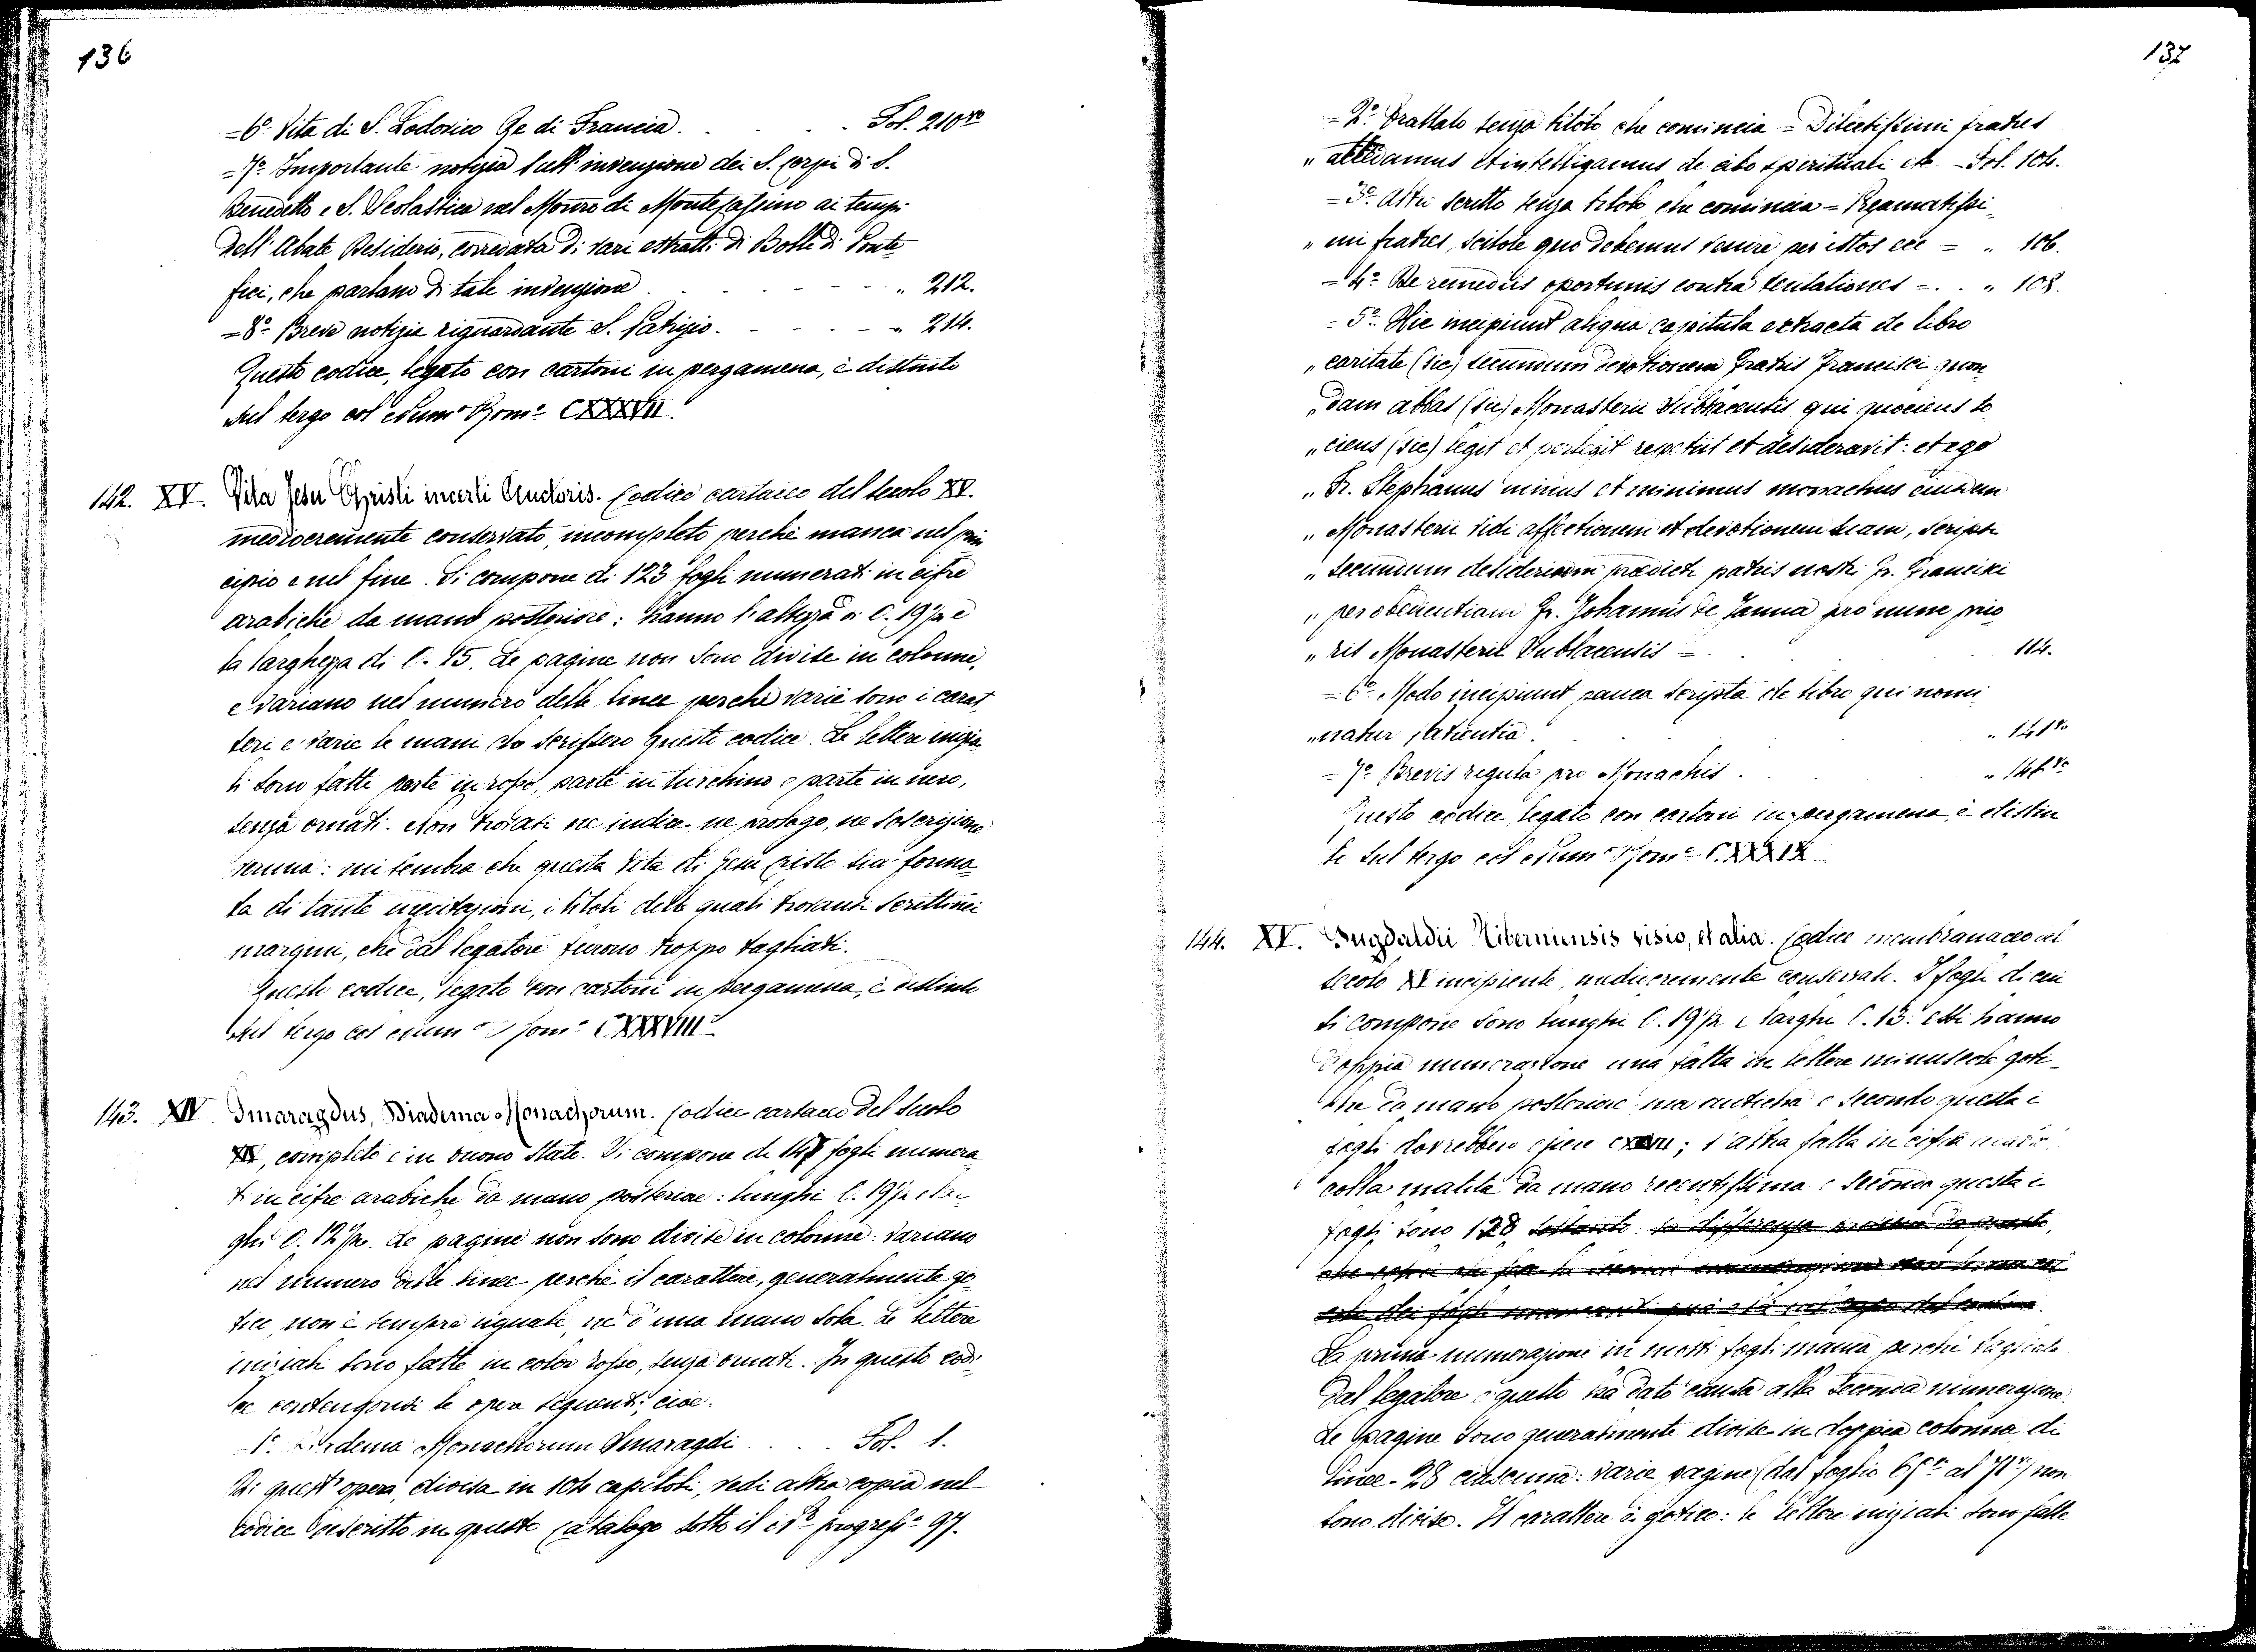 136
=6º Vita di S. Lodovico Re di Francia. . . . Fol. 210vo
=7º Importante notizia sull'invenzione dei S. Corpi di S.
Benedetto e S. Scolastica nel Monro di Montecassino ai tempi
dell'Abate Desiderio, corredata di vari estratti di Bolle di Ponte
fici, che parlano di tale invenzione . . . . . " 212.
=8º Breve notizia riguardante S. Patrizio. . . . . " 214.
Questo codice, legato con cartoni in pergamena, è distinto
sul tergo col Numo Romo CXXXVII.
142. XV. Vita Jesu Christi incerti Auctoris. Codice cartaceo del secolo XV.
mediocremente conservato, incompleto perchè manca nel prin
cipio e nel fine. Si compone di 123 fogli numerati in cifre
arabiche da mano posteriore: hanno l'altezza di C. 19 1/2 e
la larghezza di C. 15. Le pagine non sono divise in colonne,
e variano nel numero delle linee perchè varie sono i carat
teri e varie le mani che scrissero questo codice. Le lettere inizia
li sono fatte parte in rosso, parte in turchino e parte in nero,
senza ornati. Non trovasi ne indice, ne prologo, ne soscrizione
veruna: mi sembra che questa Vita di Gesu Cristo sia forma
ta di tante meditazioni, i titoli delle quali trovansi scritti nei
margini, che dal legatore furono troppo tagliati.
Questo codice, legato con cartoni in pergamena, è distinto
sul tergo col Numo Romo CXXXVIII
143. XIV. Smaragdus, Diadema Monachorum. Codice cartaceo del Secolo
XIV, completo e in buono stato. Si compone di 147 fogli numera
ti in cifre arabiche da mano posteriore: lunghi C. 19 1/2 e lar
ghi C. 12 1/2. Le pagine non sono divise in colonne: variano
nel numero delle linee perchè il carattere, generalmente go
tico, non è sempre uguale, ne d'una mano sola. Le lettere
iniziali sono fatte in color rosso, senza ornati. In questo codi
ce contengonsi le opere seguenti, cioè.
1º Diadema Monachorum Smaragdi . . . Fol. 1.
Di quest'opera, divisa in 104 capitoli, vedi altra copia nel
codice descritto in questo Catalogo sotto il Nº progresso 97.
137
=2º Trattato senza titolo che comincia = Dilectissimi fratres
" attedamus et intelligamus de cibo spirituali etc = Fol. 104.
=3º Altro scritto senza titolo che comincia = Reamatissi
" mi fratres, scitote quo debemus venire per istos ecc = " 106.
=4º De remediis oportunis contra tentationes = . . " 108.
=5º Hic incipiunt aliqua capitula extracta de libro
" caritate (sic) secundum devotionem Fratris Francisci quon
" dam abbas (sic) Monasterii Sublacensis qui quociens to
" ciens (sic) legit et perlegit repetiit et desideravit: et ego
" Fr. Stephanus minus et minimus monachus eiusdem
" Monasterii vidi affectionem et devotionem suam, scripsi
" secundum desiderium predicti patris nostri Fr. Francisci
" per obedientiam Fr. Johannis de Janua pro nunc prio
" ris Monasterii Sublacensis = . . . 114.
=6º Modo incipiunt pauca scripta de libro qui nomi
" natur patientia. . . . . " 141vo
=7º Brevis regula pro Monachis . . . . " 146vo
Questo codice, legato con cartoni in pergamena, è distin
to sul tergo col Numo Romo CXXXIX
144. XV. Tugdaldii Hiberniensis visio, et alia. Codice membranaceo del
secolo XV incipiente, mediocremente conservato. I fogli di cui
si compone sono lunghi C. 19 1/2 e larghi C. 13: essi hanno
doppia numerazione una fatta in lettere minuscole goti
che da mano posteriore ma antica e secondo questa i
fogli dovrebbero essere; l'altra fatta in cifre
colla matita da mano recentissima e secondo questa i
fogli sono 128 soltanto: la differenza
La prima numerazione in molti fogli manca perchè tagliata
dal legatore e questo ha dato causa alla seconda numerazione.
Le pagine sono generalmente divise in doppia colonna di
linee = 28 ciascuna: varie pagine (dal foglio al) non
sono divise. Il carattere è gotico: le lettere iniziali sono fatte